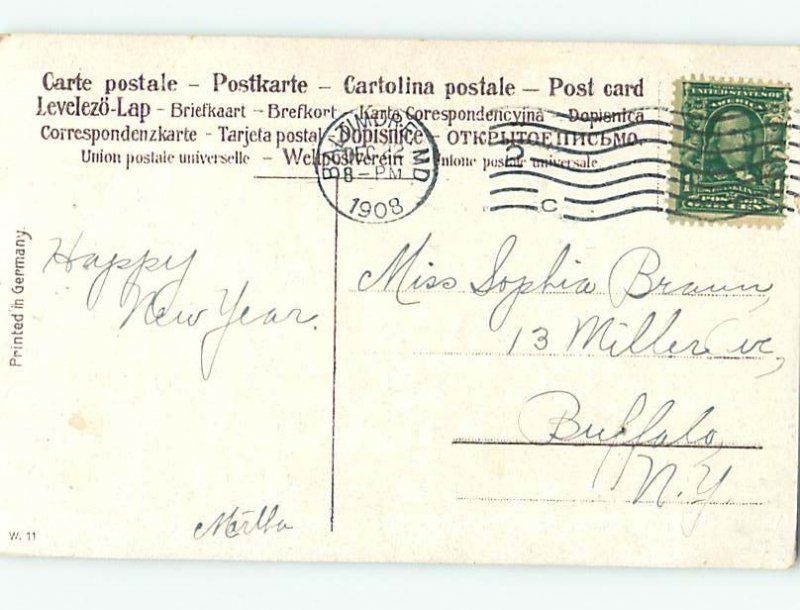 Carte postale – Postkarte – Cartolina postale – Post card
Levelező-Lap – Briefkaart – Brefkort – Karta Corespondencyjna – Dopisnica
Correspondenzkarte – Tarjeta postal – Dopisnice – ОТКРЫТОЕ ПИСЬМО.
Union postale universelle – Weltpostverein – Unione postale universale
BALTIMORE, MD
DEC
8 – PM
1908
2
C
UNITED STATES OF
AMERICA
1 1
POSTAGE
ONE CENT
Printed in Germany.
Happy
New Year.
Martha
Miss Sophia Braun,
13 Miller
Buffalo,
N.Y.
W. 11